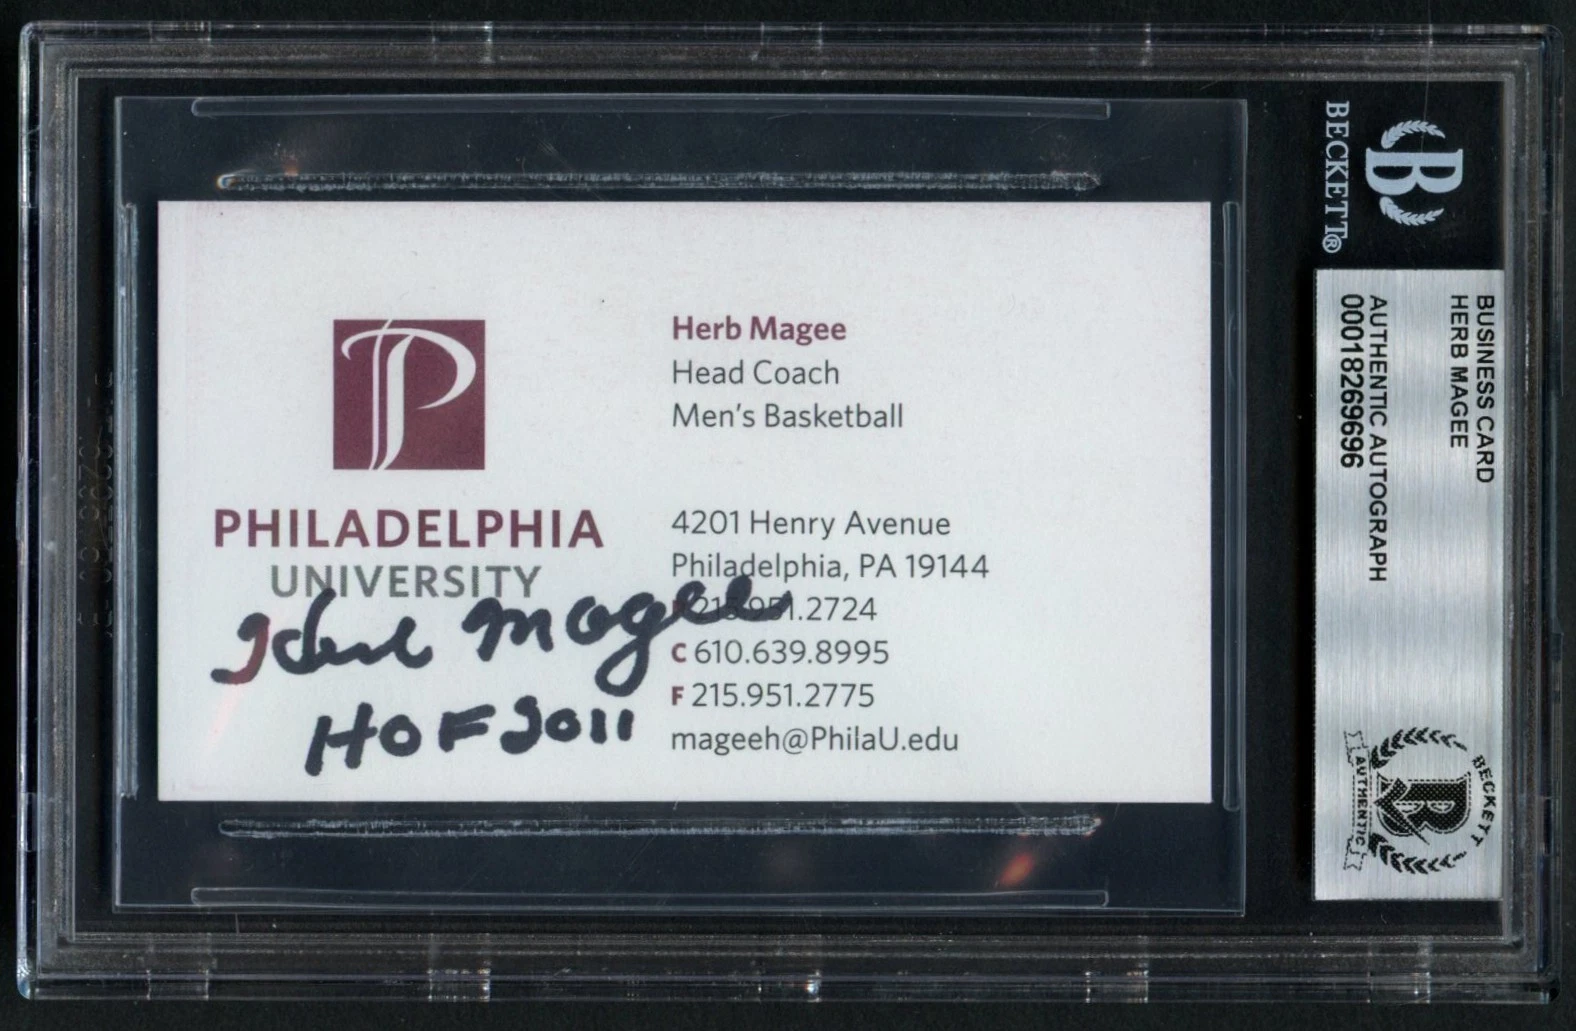 Herb Magee
Head Coach
Men's Basketball
PHILADELPHIA
UNIVERSITY
4201 Henry Avenue
Philadelphia, PA 19144
215.951.2724
C 610.639.8995
F 215.951.2775
mageeh@PhilaU.edu
Herb Magee
HOF 2011
BECKETT®
BUSINESS CARD
HERB MAGEE
AUTHENTIC AUTOGRAPH
00018269696
BECKETT
AUTHENTIC